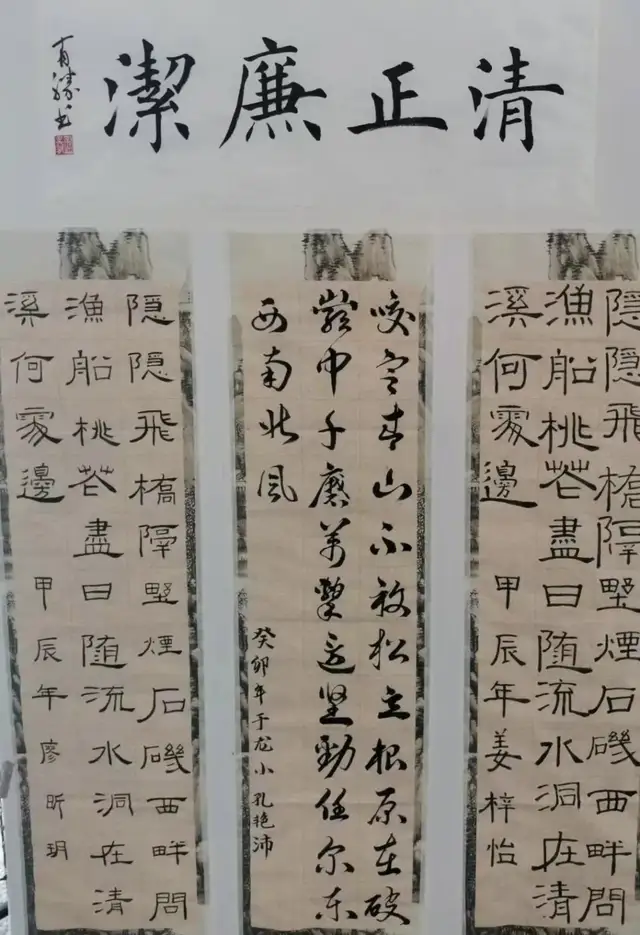 清正廉潔
隐隐飛橋隔墅煙石磯西畔問
漁船桃花盡日随流水洞在清
溪何處邊 甲辰年姜梓怡
咬定青山不放松立根原在破
巖中千磨萬擊还坚勁任尔东
西南北风
癸卯年于龙小 孔艳沛
隐隐飛橋隔墅煙石磯西畔問
漁船桃花盡日随流水洞在清
溪何處邊 甲辰年廖昕玥